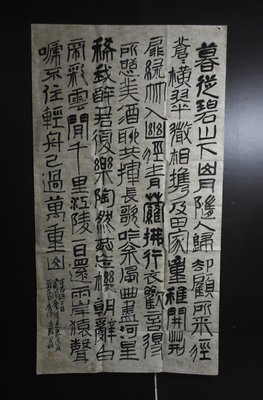 暮從碧山下山月隨人歸却顧所來徑
蒼蒼橫翠微相携及田家童稚開荊
扉綠竹入幽徑青蘿拂行衣歡言得
所憩美酒聊共揮長歌吟松風曲盡河星
稀我醉君復樂陶然共忘機朝辭白
帝彩雲間千里江陵一日還兩岸猿聲
啼不住輕舟已過萬重山